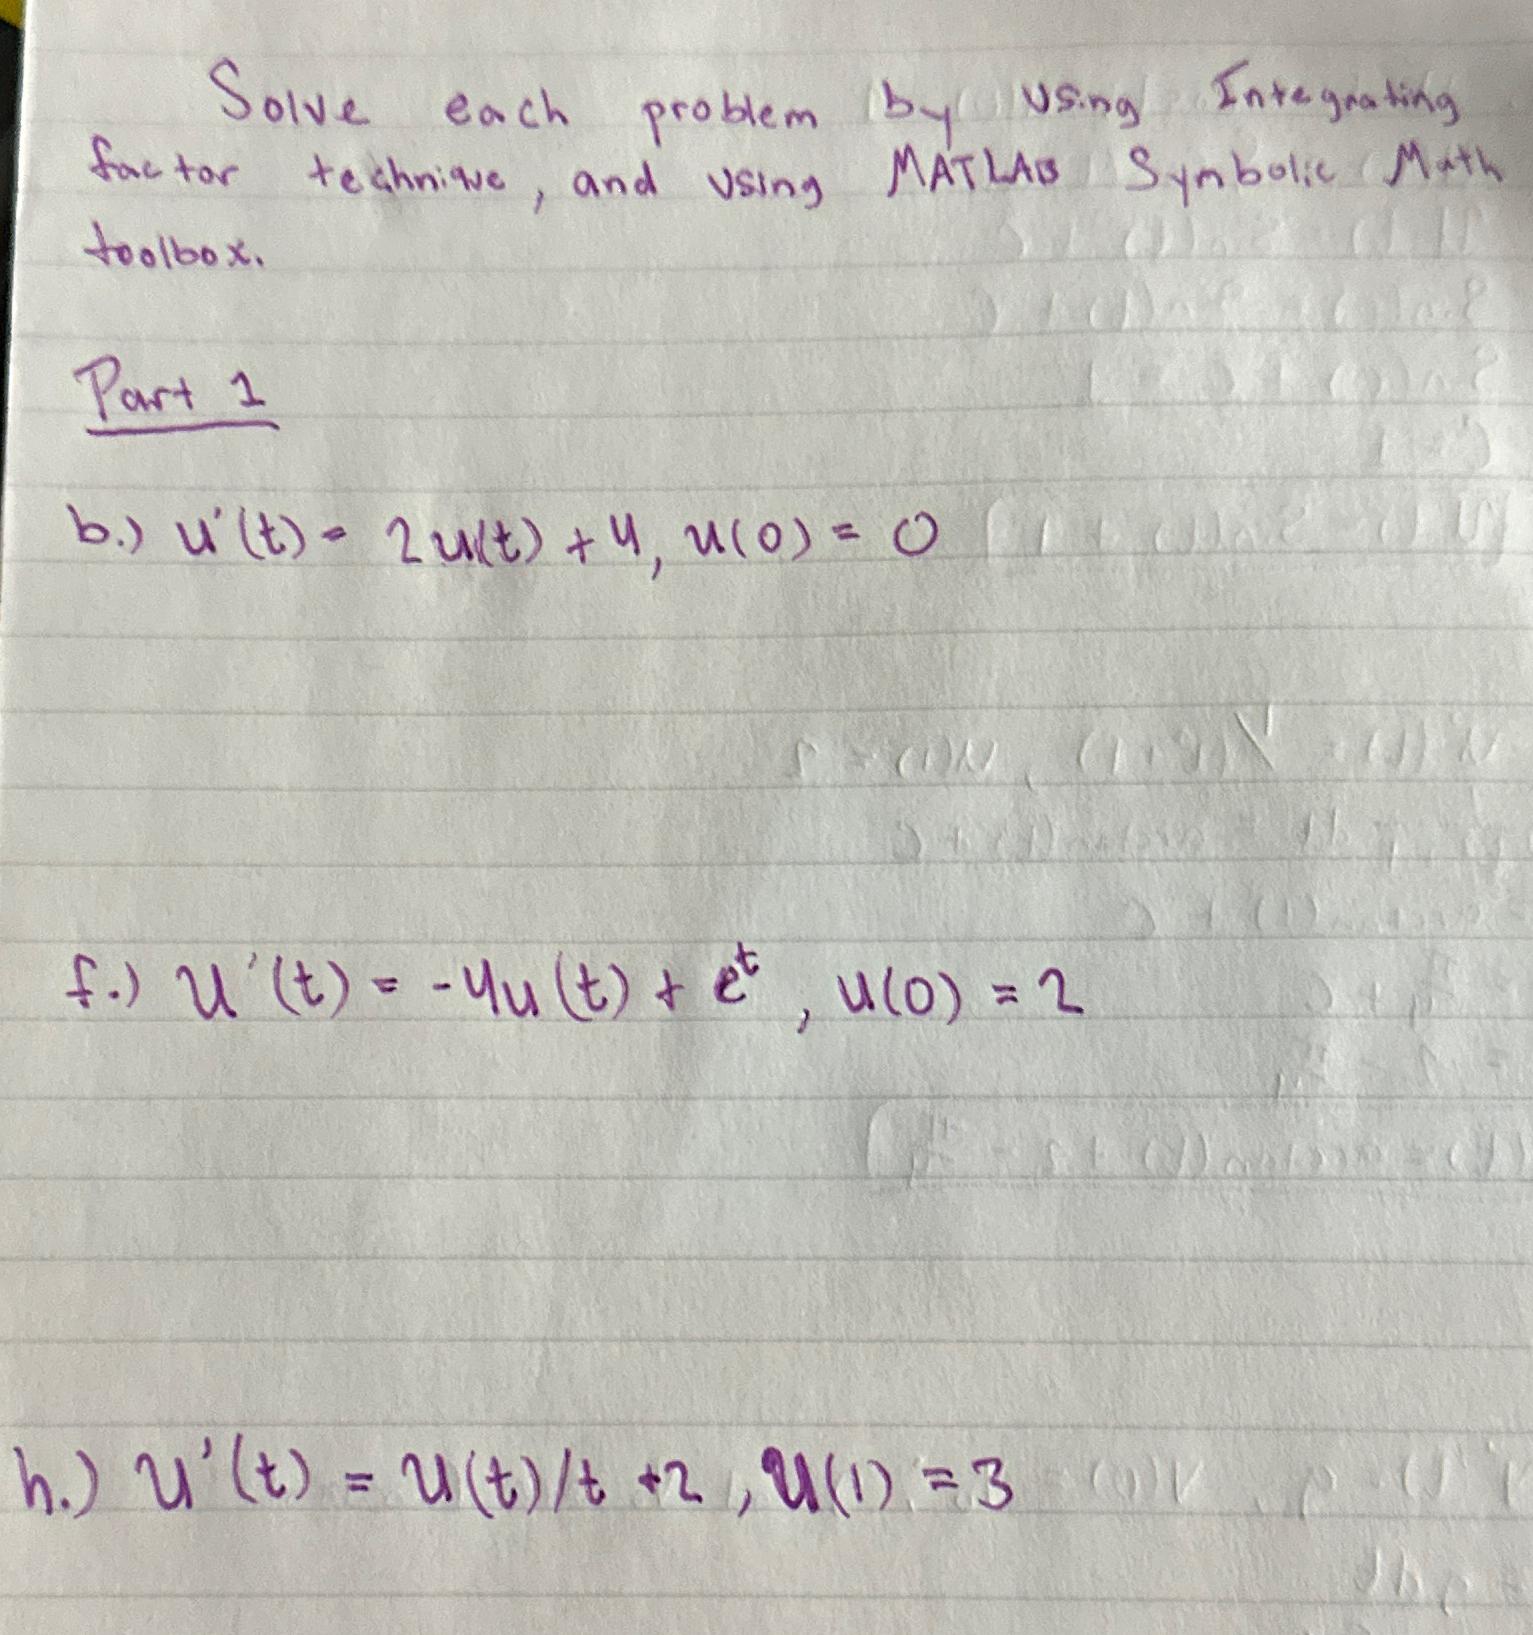 Solve each problem by using Integrating
factor technique, and using MATLAB Symbolic Math
toolbox.
Part 1
b.) u'(t) = 2u(t) + 4, u(0) = 0
f.) u'(t) = -4u(t) + e^t, u(0) = 2
h.) u'(t) = u(t)/t +2, u(1) = 3